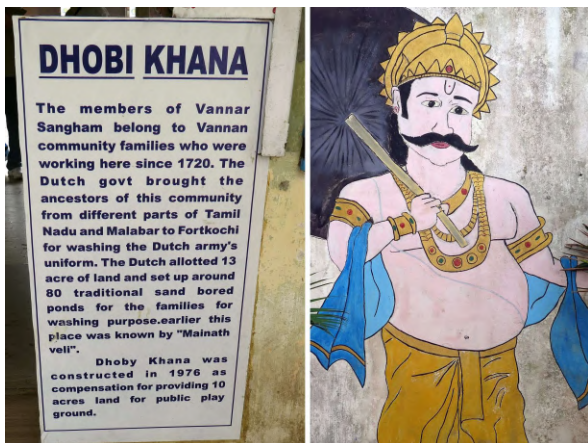 DHOBI KHANA
The members of Vannar
Sangham belong to Vannan
community families who were
working here since 1720. The
Dutch govt brought the
ancestors of this community
from different parts of Tamil
Nadu and Malabar to Fortkochi
for washing the Dutch army's
uniform. The Dutch allotted 13
acre of land and set up around
80 traditional sand bored
ponds for the families for
washing purpose.earlier this
place was known by "Mainath
veli".
Dhoby Khana was
constructed in 1976 as
compensation for providing 10
acres land for public play
ground.